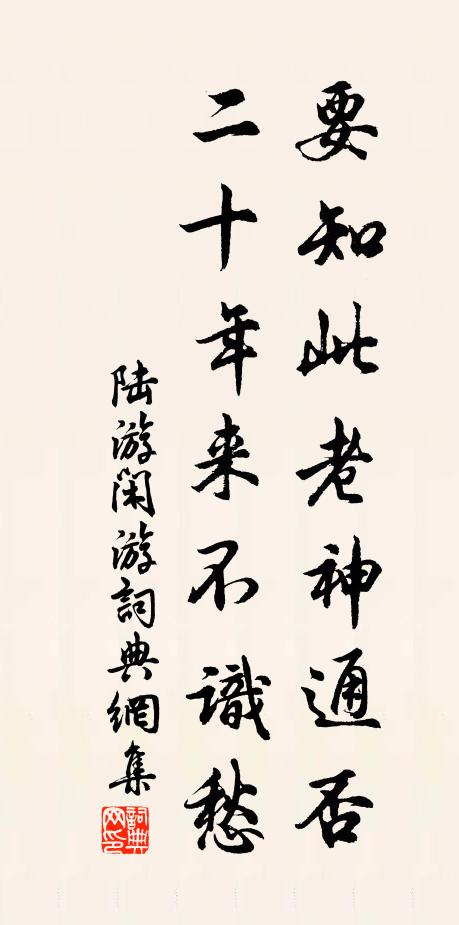 要知此老神通否
二十年来不識愁
陆游闲游詞典網集
詞典网印